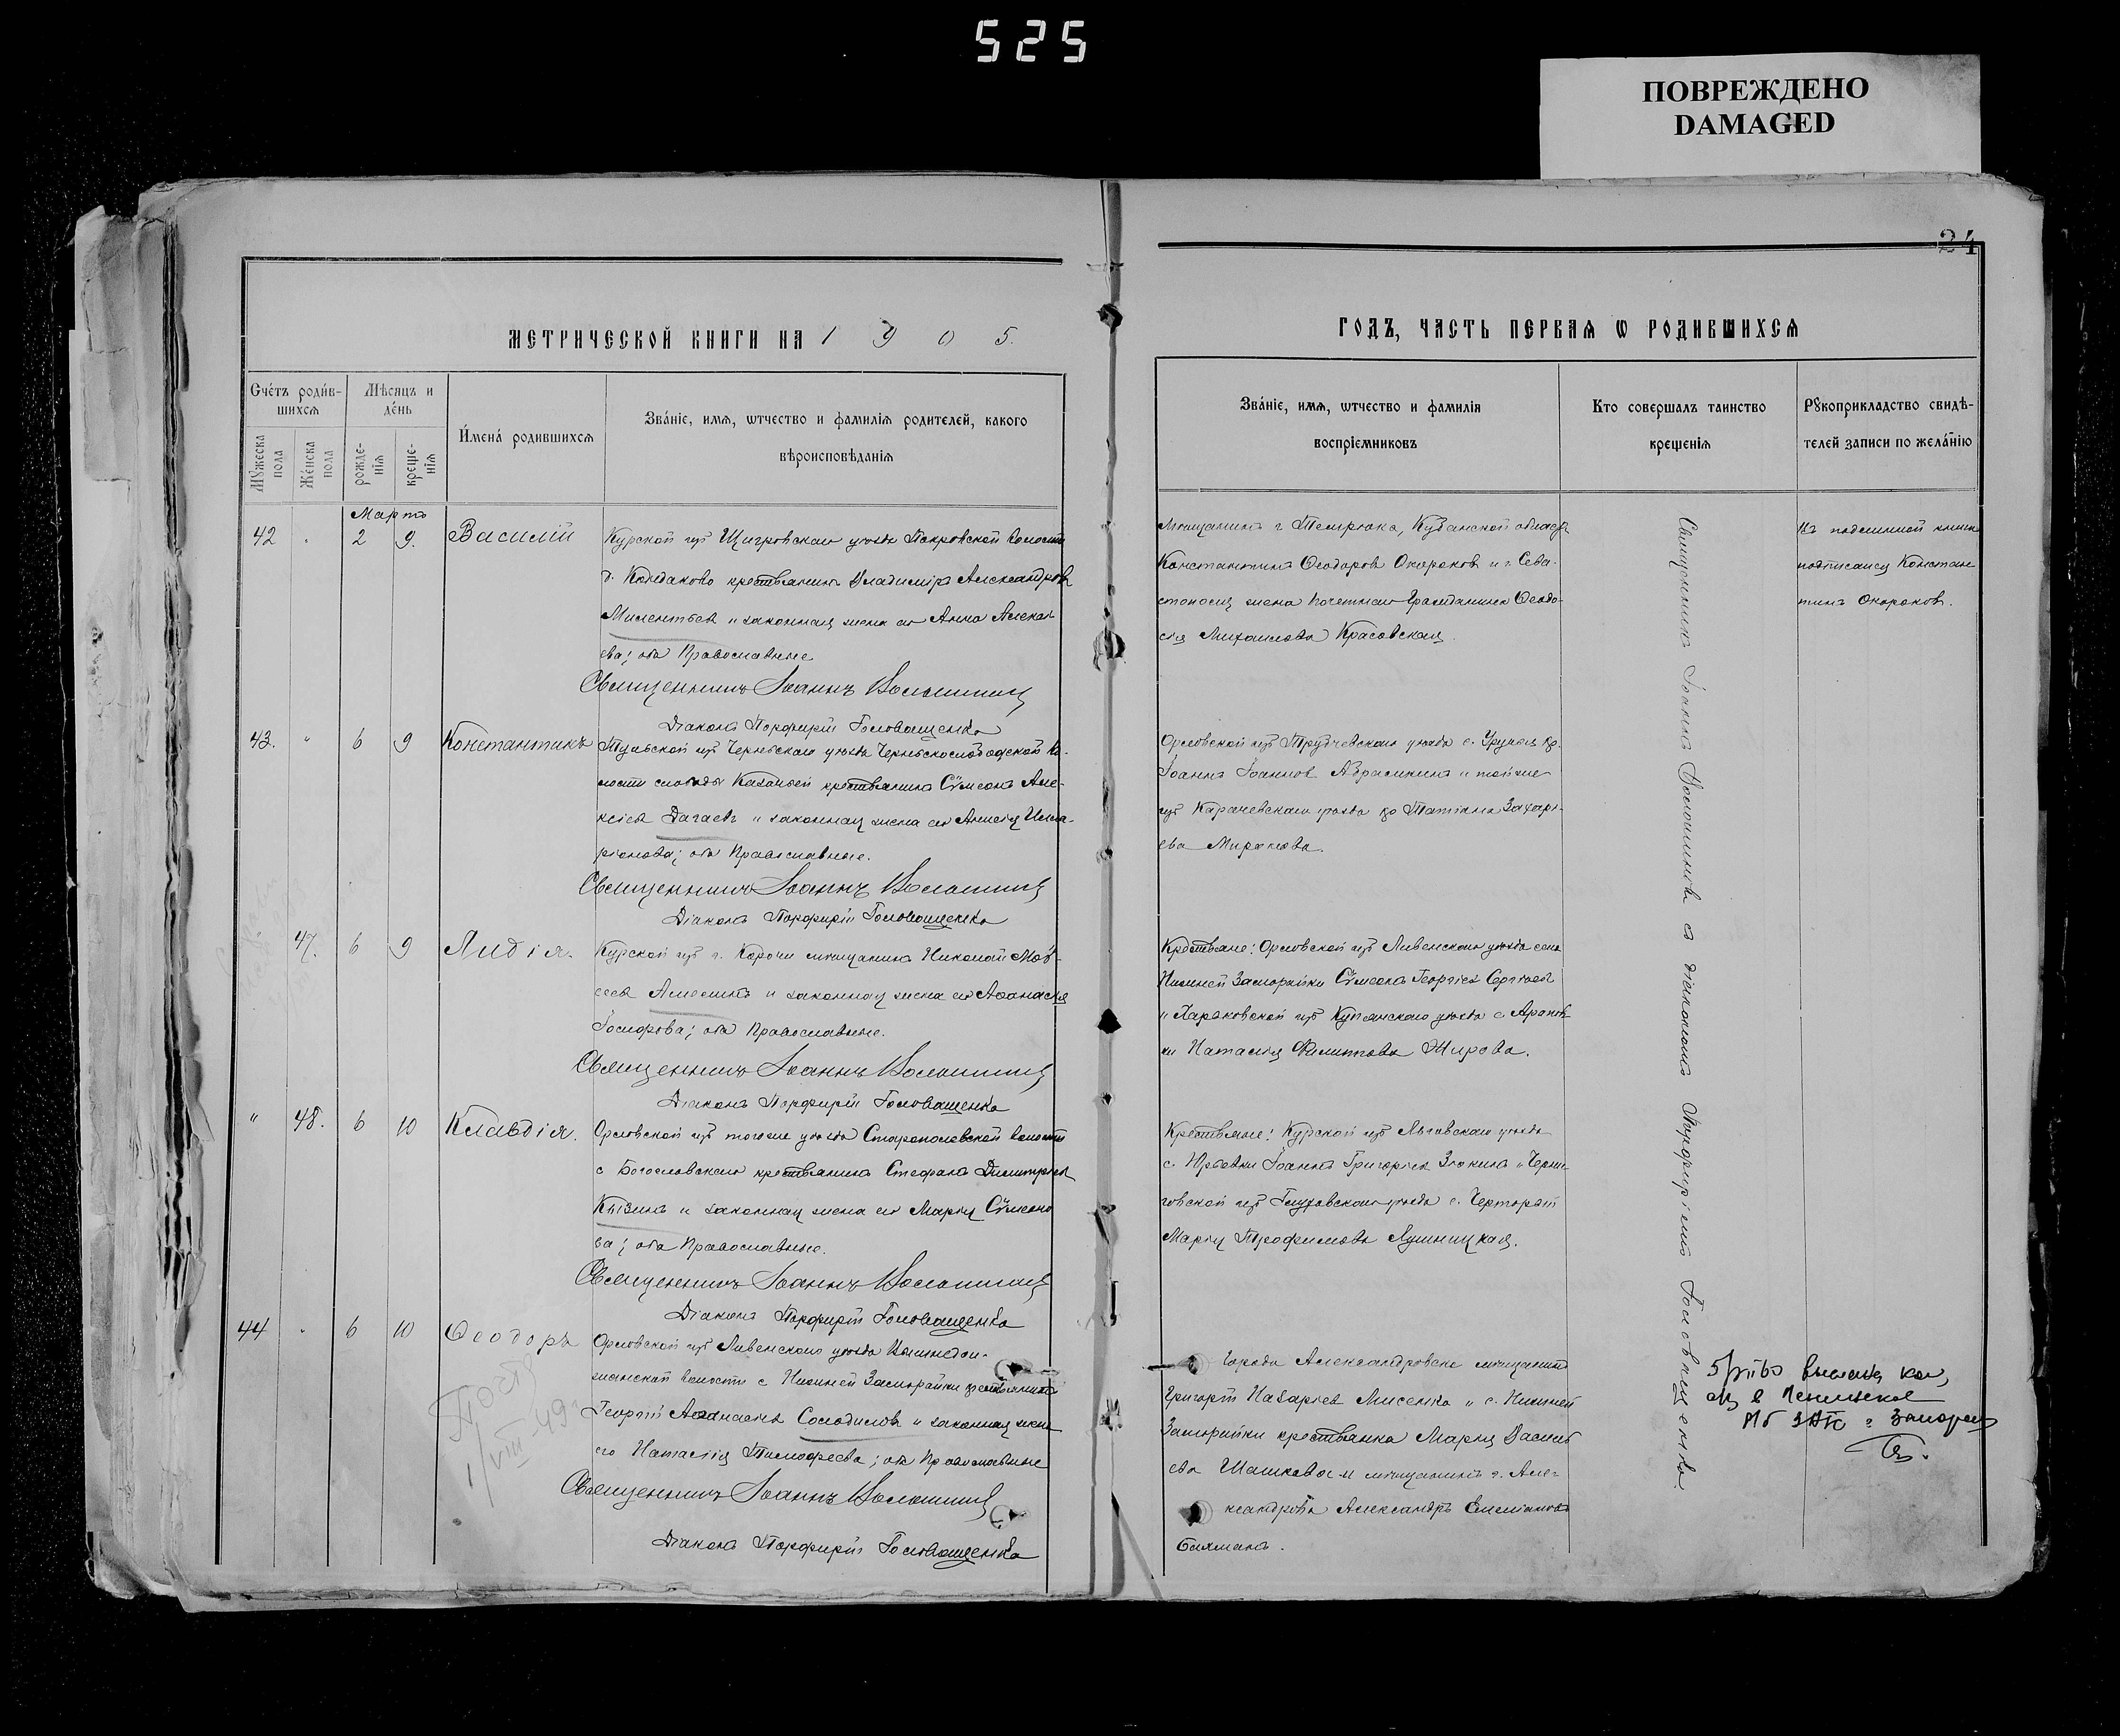 525
ПОВРЕЖДЕНО
DAMAGED
24
МЕТРИЧЕСКОЙ КНИГИ НА 1905.
ГОДЪ, ЧАСТЬ ПЕРВАЯ Ѡ РОДИВШИХСѦ
Счéтъ родив-
шихсѧ
Мѣсяцъ и
дéнь
Мȣжеска
пола
Жéнска
пола
рожде-
нія
креще-
нія
И́менá родившихсѧ
Звáніе, имѧ, ѡтчество и фамилія родителей, какого
вѣроисповѣданія
Звáніе, имѧ, ѡтчество и фамилія
воспріемниковъ
Кто совершалъ таинство
крещенія
Рȣкоприкладство свидѣ-
телей записи по желáнію
Мартъ
42 " 2 9. Василій
Курской губ Щигровскаго уѣзда Покровской волости
крестьянина Владиміра Александрова
Милентьев и законная жена его Анна Алексѣ
ева; оба Православные
Священникъ Іоаннъ Волошинъ
Діаконъ Порфирій Головащенко
Мѣщанинъ г Темрюка, Кубанской област
Константинъ Ѳеодоров Окороков и г. Сева-
стополя жена Почетнаго Гражданина Ѳеодо-
сія Михаилова Красовская
Въ подлинной книге
подписался Констан
тинъ Окороков.
43. " 6 9 Константинъ
Тульской губ Чернскаго уѣзда Чернскослободской во-
лости слободы Казачьей крестьянина Сѵмеона Але-
ксіев Дагаевъ и законная жена его Анисія Илла-
ріонова; оба Православные.
Священникъ Іоаннъ Волошинъ
Діаконъ Порфирій Головащенко
Орловской губ Трубчевскаго уѣзда с. кр.
Іоаннъ Іоаннов Абрамкинъ и той же
губ Карачевскаго уѣзда кр Татіана Захарі-
ева Миронова.
" 47. 6 9 Лидія.
Курской губ г. Корочи мѣщанина Николай Мов-
сеев и законная жена его Аѳанасія
Іосифова; оба Православные.
Священникъ Іоаннъ Волошинъ
Діаконъ Порфирій Головащенко
Крестьяне: Орловской губ Ливенскаго уѣзда села
Нижней Заморайки Сѵмеонъ Георгіев Сергѣев
и Харьковской губ Купянскаго уѣзда с
ки Наталія Филиппова Жирова.
" 48. 6 10 Клавдія.
Орловской губ того же уѣзда волости
с Богословскаго крестьянина Стефана Димитріев
Кызинъ и законная жена его Марія Сѵмеоно
ва; оба Православные.
Священникъ Іоаннъ Волошинъ
Діаконъ Порфирій Головащенко
Крестьяне: Курской губ Льговскаго уѣзда
с. Іоаннъ Григорьев и Черни-
говской губ Глуховскаго уѣзда с. Чарторыт
Марія Трофимова Лушицкая.
44 " 6 10 Ѳеодоръ
Орловской губ Ливенскаго уѣзда
волости с Нижней Заморайки крестьянина
Георгій Аѳанасіев Солодилов и законная жена
его Наталія Тимоѳеева; оба Православные
Священникъ Іоаннъ Волошинъ
Діаконъ Порфирій Головащенко
Города Александровска мѣщанинъ
Григорій Назарьев Лисенко и с. Нижней
Заморайки крестьянка Марія Василь
ева Шашкова и мѣщанинъ г. Але-
ксандровска Александръ Емеліановъ
Священникъ Іоаннъ Волошинов съ діакономъ Порфиріемъ Головащенко.
VIII-49